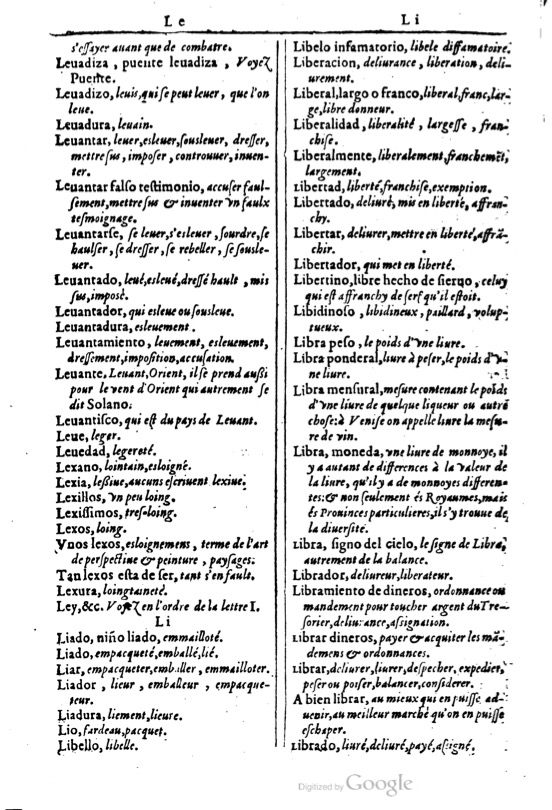 Le
s'eſſayer auant que de combatre.
Leuadiza, puente leuadiza, Voyez
Puente.
Leuadizo, leuis, qui ſe peut leuer, que l'on
leue.
Leuadura, leuain.
Leuantar, leuer, esleuer, ſousleuer, dreſſer,
mettre ſus, impoſer, controuuer, inuen-
ter.
Leuantar falſo teſtimonio, accuſer faul-
ſement, mettre ſus & inuenter vn faulx
teſmoignage.
Leuantarſe, ſe leuer, s'esleuer, ſourdre, ſe
haulſer, ſe dreſſer, ſe rebeller, ſe ſousle-
uer.
Leuantado, leué, esleué, dreſſé hault, mis
ſus, impoſé.
Leuantador, qui esleue ou ſousleue.
Leuantadura, esleuement.
Leuantamiento, leuement, esleuement,
dreſſement, impoſition, accuſation.
Leuante, Leuant, Orient, il ſe prend außi
pour le vent d'Orient qui autrement ſe
dit Solano.
Leuantiſco, qui eſt du pays de Leuant.
Leue, leger.
Leuedad, legereté.
Lexano, lointain, esloigné.
Lexia, leßiue, aucuns eſcriuent lexiue.
Lexillos, vn peu loing.
Lexiſſimos, treſ-loing.
Lexos, loing.
Vnos lexos, esloignemens, terme de l'art
de perſpectiue & peinture, payſages.
Tan lexos eſta de ſer, tant s'en fault.
Lexura, loingtaneté.
Ley, &c. Voyez en l'ordre de la lettre I.
Li
Liado, niño liado, emmailloté.
Liado, empacqueté, emballé, lié.
Liar, empacqueter, emballer, emmailloter.
Liador, lieur, emballeur, empacque-
teur.
Liadura, liement, lieure.
Lio, fardeau, pacquet.
Libello, libelle.
Li
Libelo infamatorio, libele diffamatoire.
Liberacion, deliurance, liberation, deli-
urement.
Liberal, largo o franco, liberal, franc, lar-
ge, libre donneur.
Liberalidad, liberalité, largeſſe, fran-
chiſe.
Liberalmente, liberalement, franchemẽt,
largement.
Libertad, liberté, franchiſe, exemption.
Libertado, deliuré, mis en liberté, affran-
chy.
Libertar, deliurer, mettre en liberté, affrã-
chir.
Libertador, qui met en liberté.
Libertino, libre hecho de ſieruo, celuy
qui eſt affranchy de ſerf qu'il eſtoit.
Libidinoſo, libidineux, paillard, volup-
tueux.
Libra peſo, le poids d'vne liure.
Libra ponderal, liure à peſer, le poids d'v-
ne liure.
Libra menſural, meſure contenant le poids
d'vne liure de quelque liqueur ou autre
choſe: à Veniſe on appelle liure la meſu-
re de vin.
Libra, moneda, vne liure de monnoye, il
y a autant de differences à la valeur de
la liure, qu'il y a de monnoyes differen-
tes: & non ſeulement és Royaumes, mais
és Prouinces particulieres, il s'y trouue de
la diuerſité.
Libra, ſigno del cielo, le ſigne de Libra,
autrement de la balance.
Librador, deliureur, liberateur.
Libramiento de dineros, ordonnance ou
mandement pour toucher argent du Tre-
ſorier, deliurance, aſſignation.
Librar dineros, payer & acquiter les mã-
demens & ordonnances.
Librar, deliurer, liurer, deſpecher, expedier,
peſer ou poiſer, balancer, conſiderer.
A bien librar, au mieux qui en puiſſe ad-
uenir, au meilleur marché qu'on en puiſſe
eſchaper.
Librado, liuré, deliuré, payé, aſsigné.
Digitized by Google